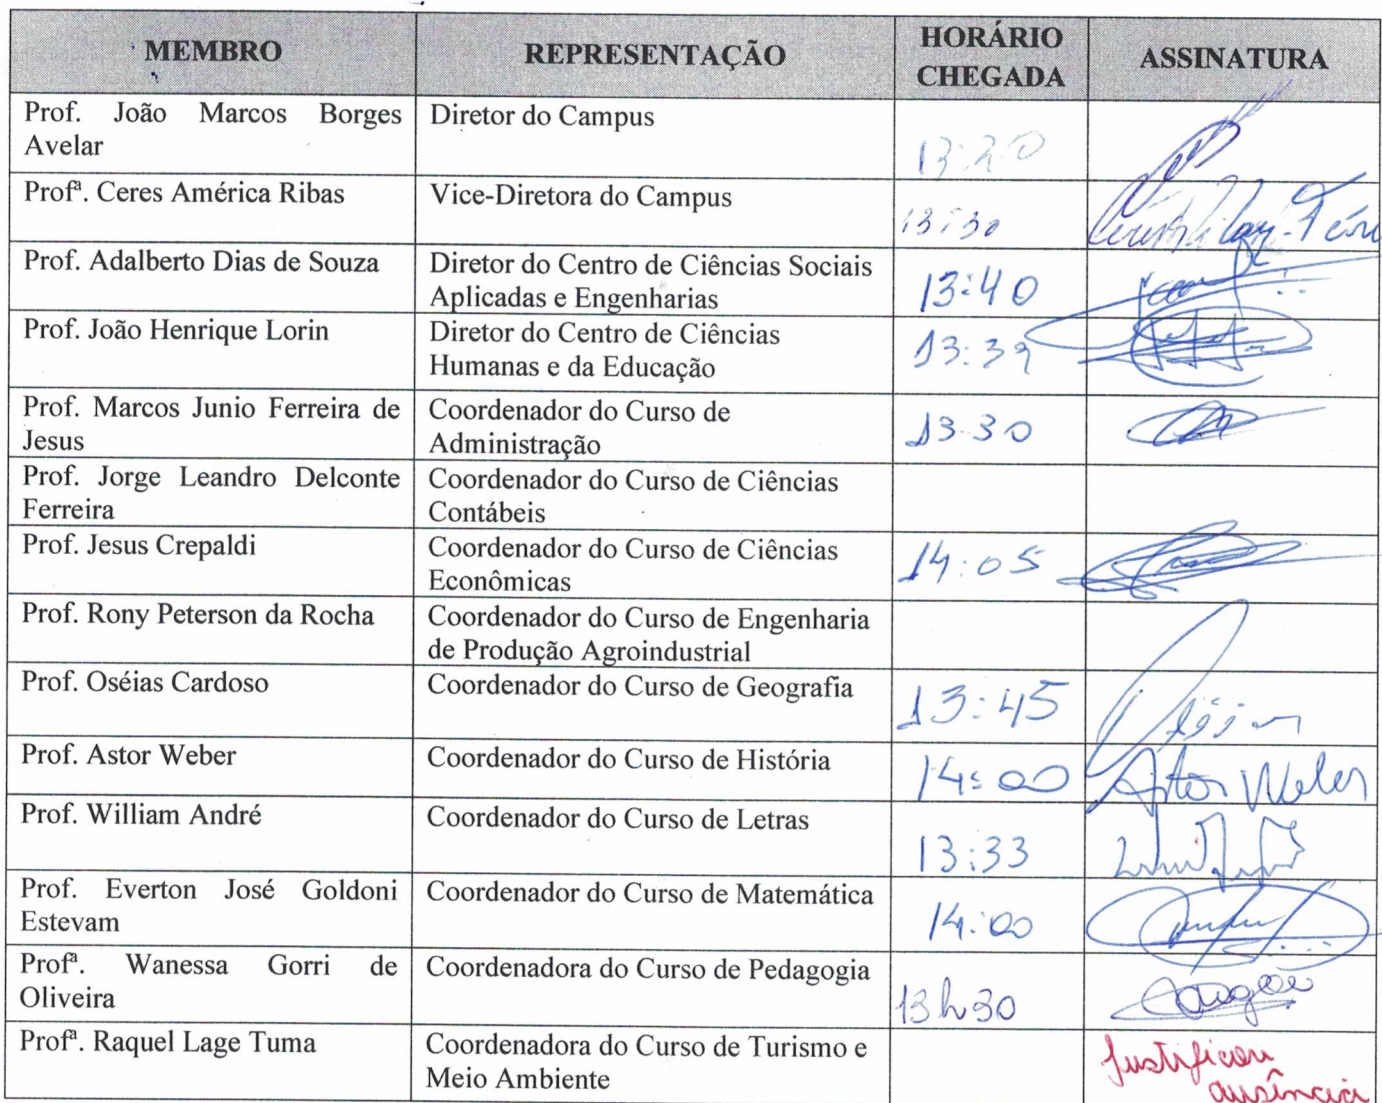 MEMBRO REPRESENTAÇÃO HORÁRIO CHEGADA ASSINATURA
Prof. João Marcos Borges Diretor do Campus
Avelar 13:20
Profª. Ceres América Ribas Vice-Diretora do Campus 13:30
Prof. Adalberto Dias de Souza Diretor do Centro de Ciências Sociais
Aplicadas e Engenharias 13:40
Prof. João Henrique Lorin Diretor do Centro de Ciências
Humanas e da Educação 13:39
Prof. Marcos Junio Ferreira de Coordenador do Curso de
Jesus Administração 13:30
Prof. Jorge Leandro Delconte Coordenador do Curso de Ciências
Ferreira Contábeis
Prof. Jesus Crepaldi Coordenador do Curso de Ciências
Econômicas 14:05
Prof. Rony Peterson da Rocha Coordenador do Curso de Engenharia
de Produção Agroindustrial
Prof. Oséias Cardoso Coordenador do Curso de Geografia 13:45
Prof. Astor Weber Coordenador do Curso de História 14:00 Astor Weber
Prof. William André Coordenador do Curso de Letras 13:33
Prof. Everton José Goldoni Coordenador do Curso de Matemática
Estevam 14:00
Profª. Wanessa Gorri de Coordenadora do Curso de Pedagogia
Oliveira 13h30
Profª. Raquel Lage Tuma Coordenadora do Curso de Turismo e Justificou
Meio Ambiente ausência